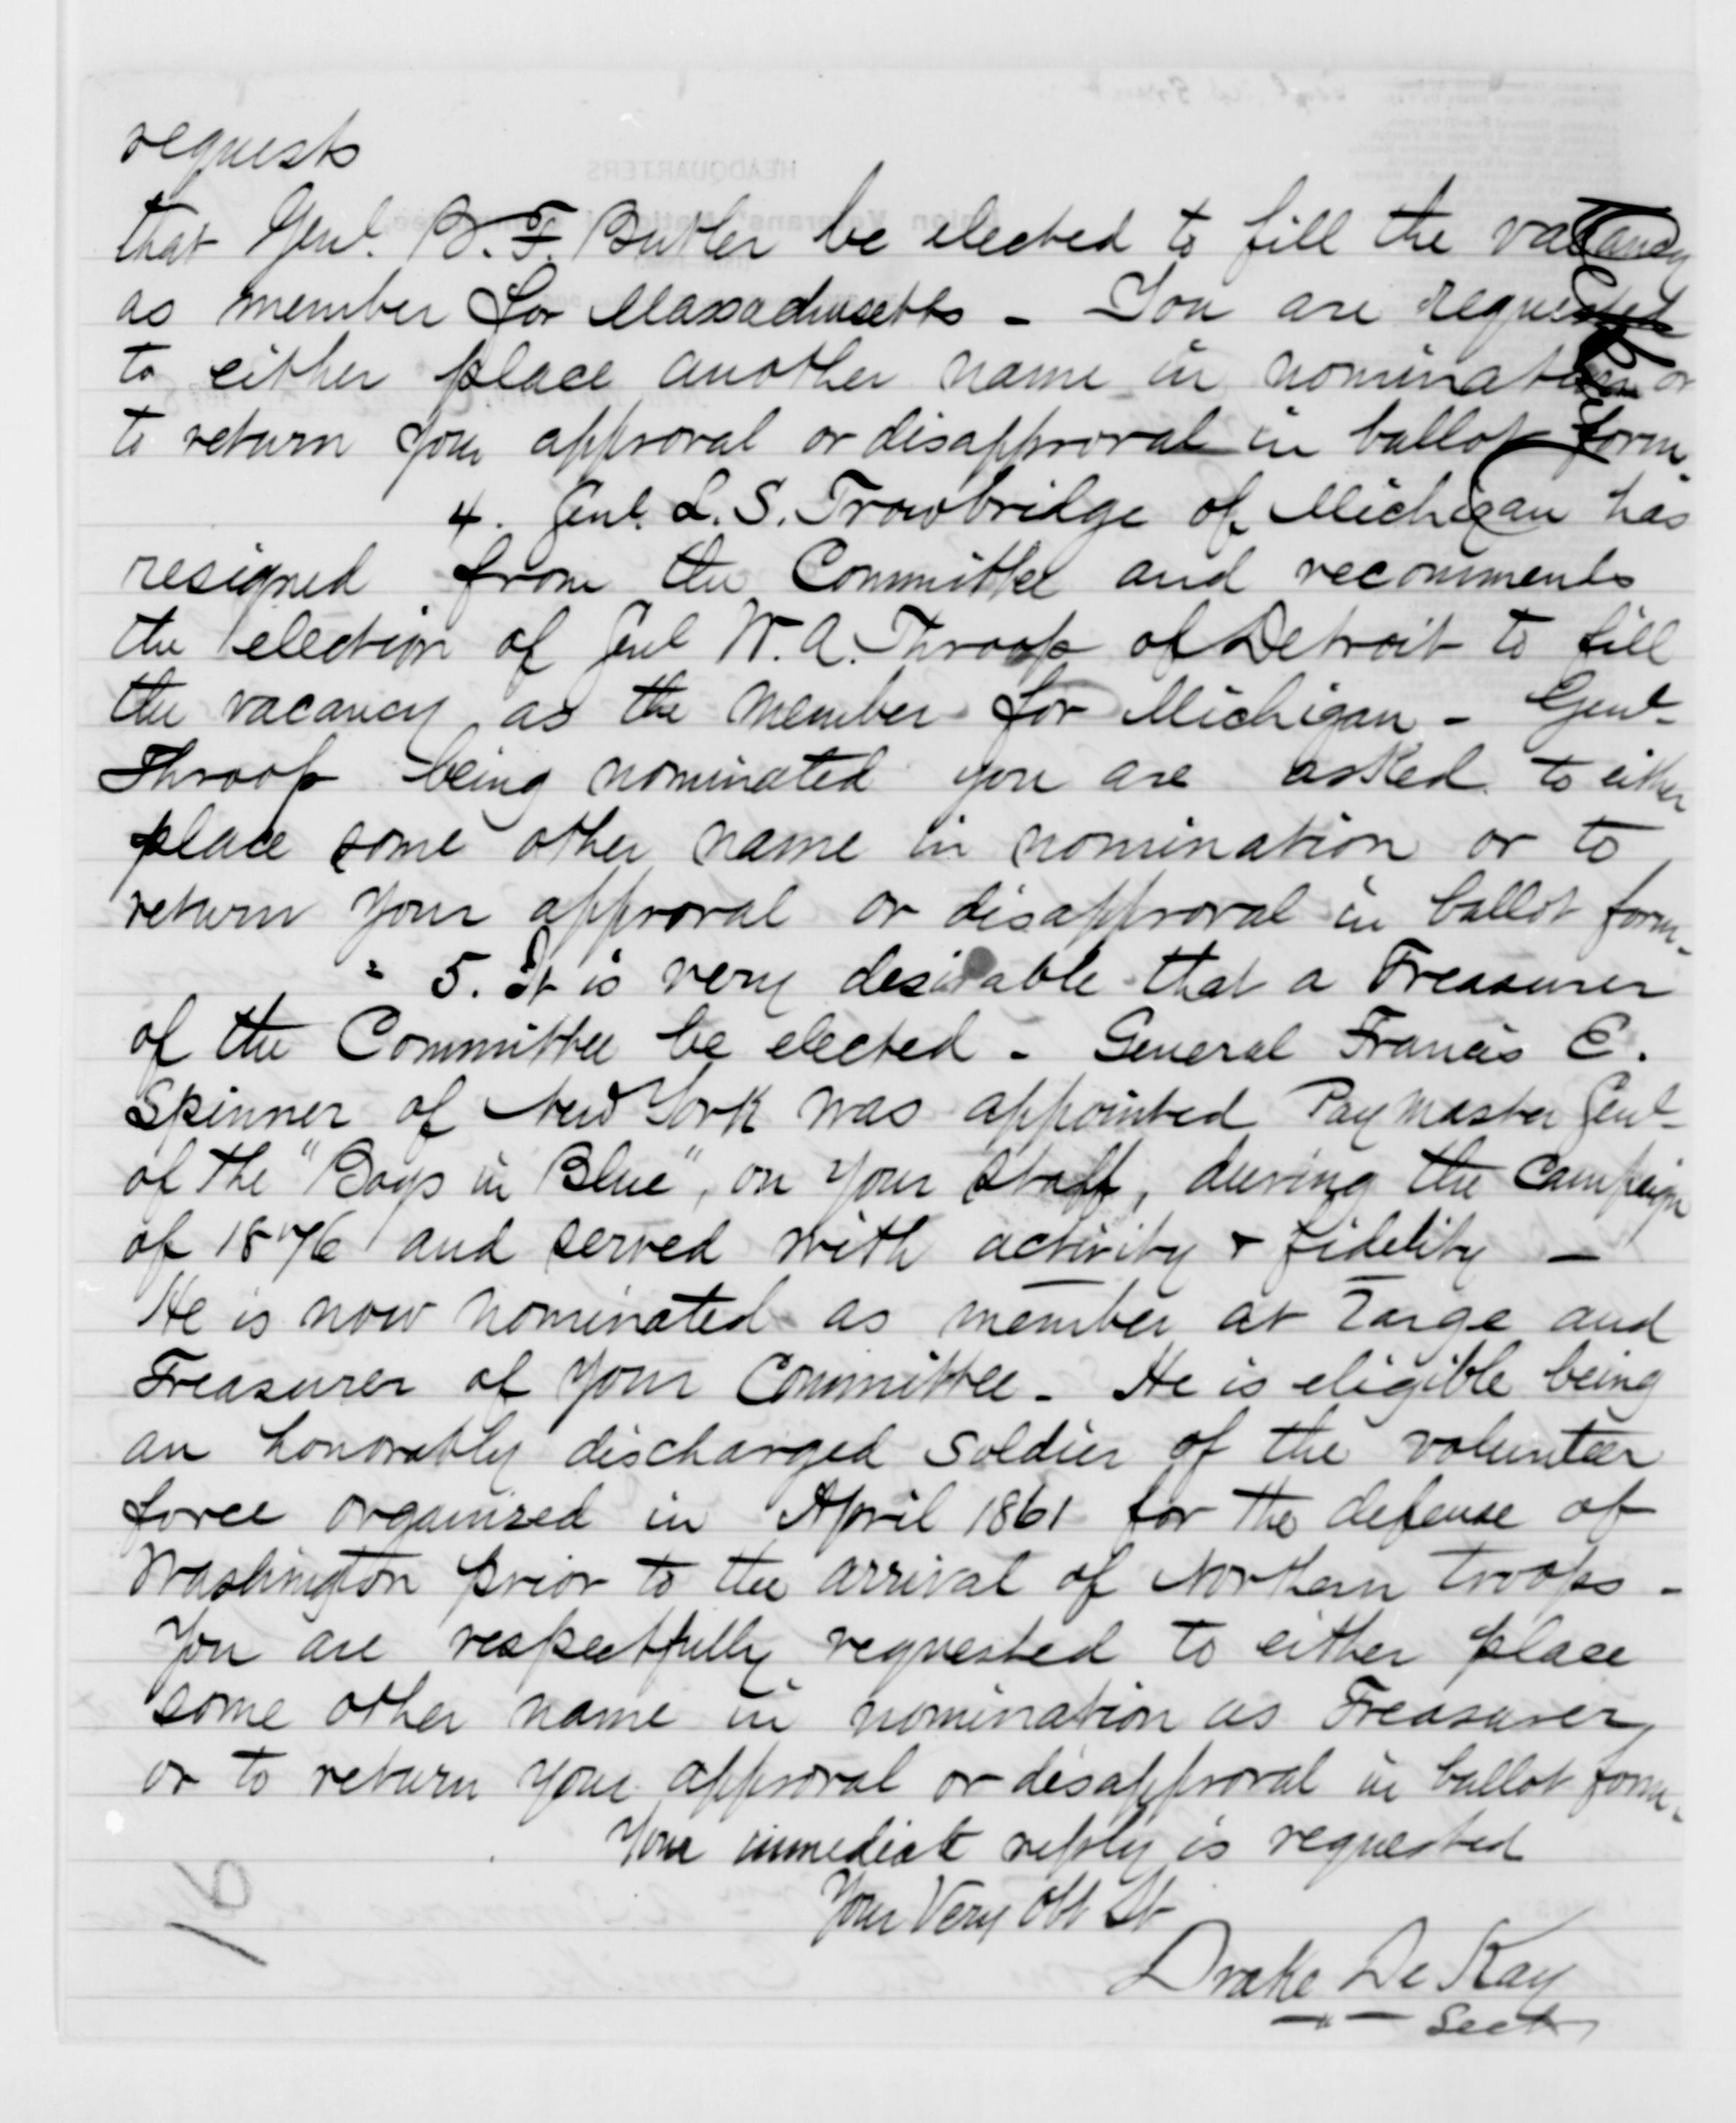 requests
that Genl. B. F. Butler be elected to fill the vacancy
as member for Massachusetts - You are requested
to either place another name in nomination or
to return your approval or disapproval in ballot form.
4. Genl. L. S. Trowbridge of Michigan has
resigned from the Committee and recomments
the election of Genl W. A. Throop of Detroit to fill
the vacancy as the member for Michigan - Genl-
Throop being nominated you are asked to either
place some other name in nomination or to
return your approval or disapproval in ballot form-
5. It is very desirable that a Treasurer
of the Committee be elected - General Francis E.
Spinner of New York was appointed Paymaster Genl-
of the "Boys in Blue", on your staff, during the Campaign
of 1876 and served with activity & fidelity -
He is now nominated as member at Large and
Treasurer of your Committee - He is eligible being
an honorably discharged soldier of the volunteer
force organized in April 1861 for the defense of
Washington prior to the arrival of Northern troops -
You are respectfully requested to either place
some other name in nomination as Treasurer,
or to return your approval or disapproval in ballot form.
Your immediate reply is requested
Your Very Obt St
Drake De Kay
Secty
16